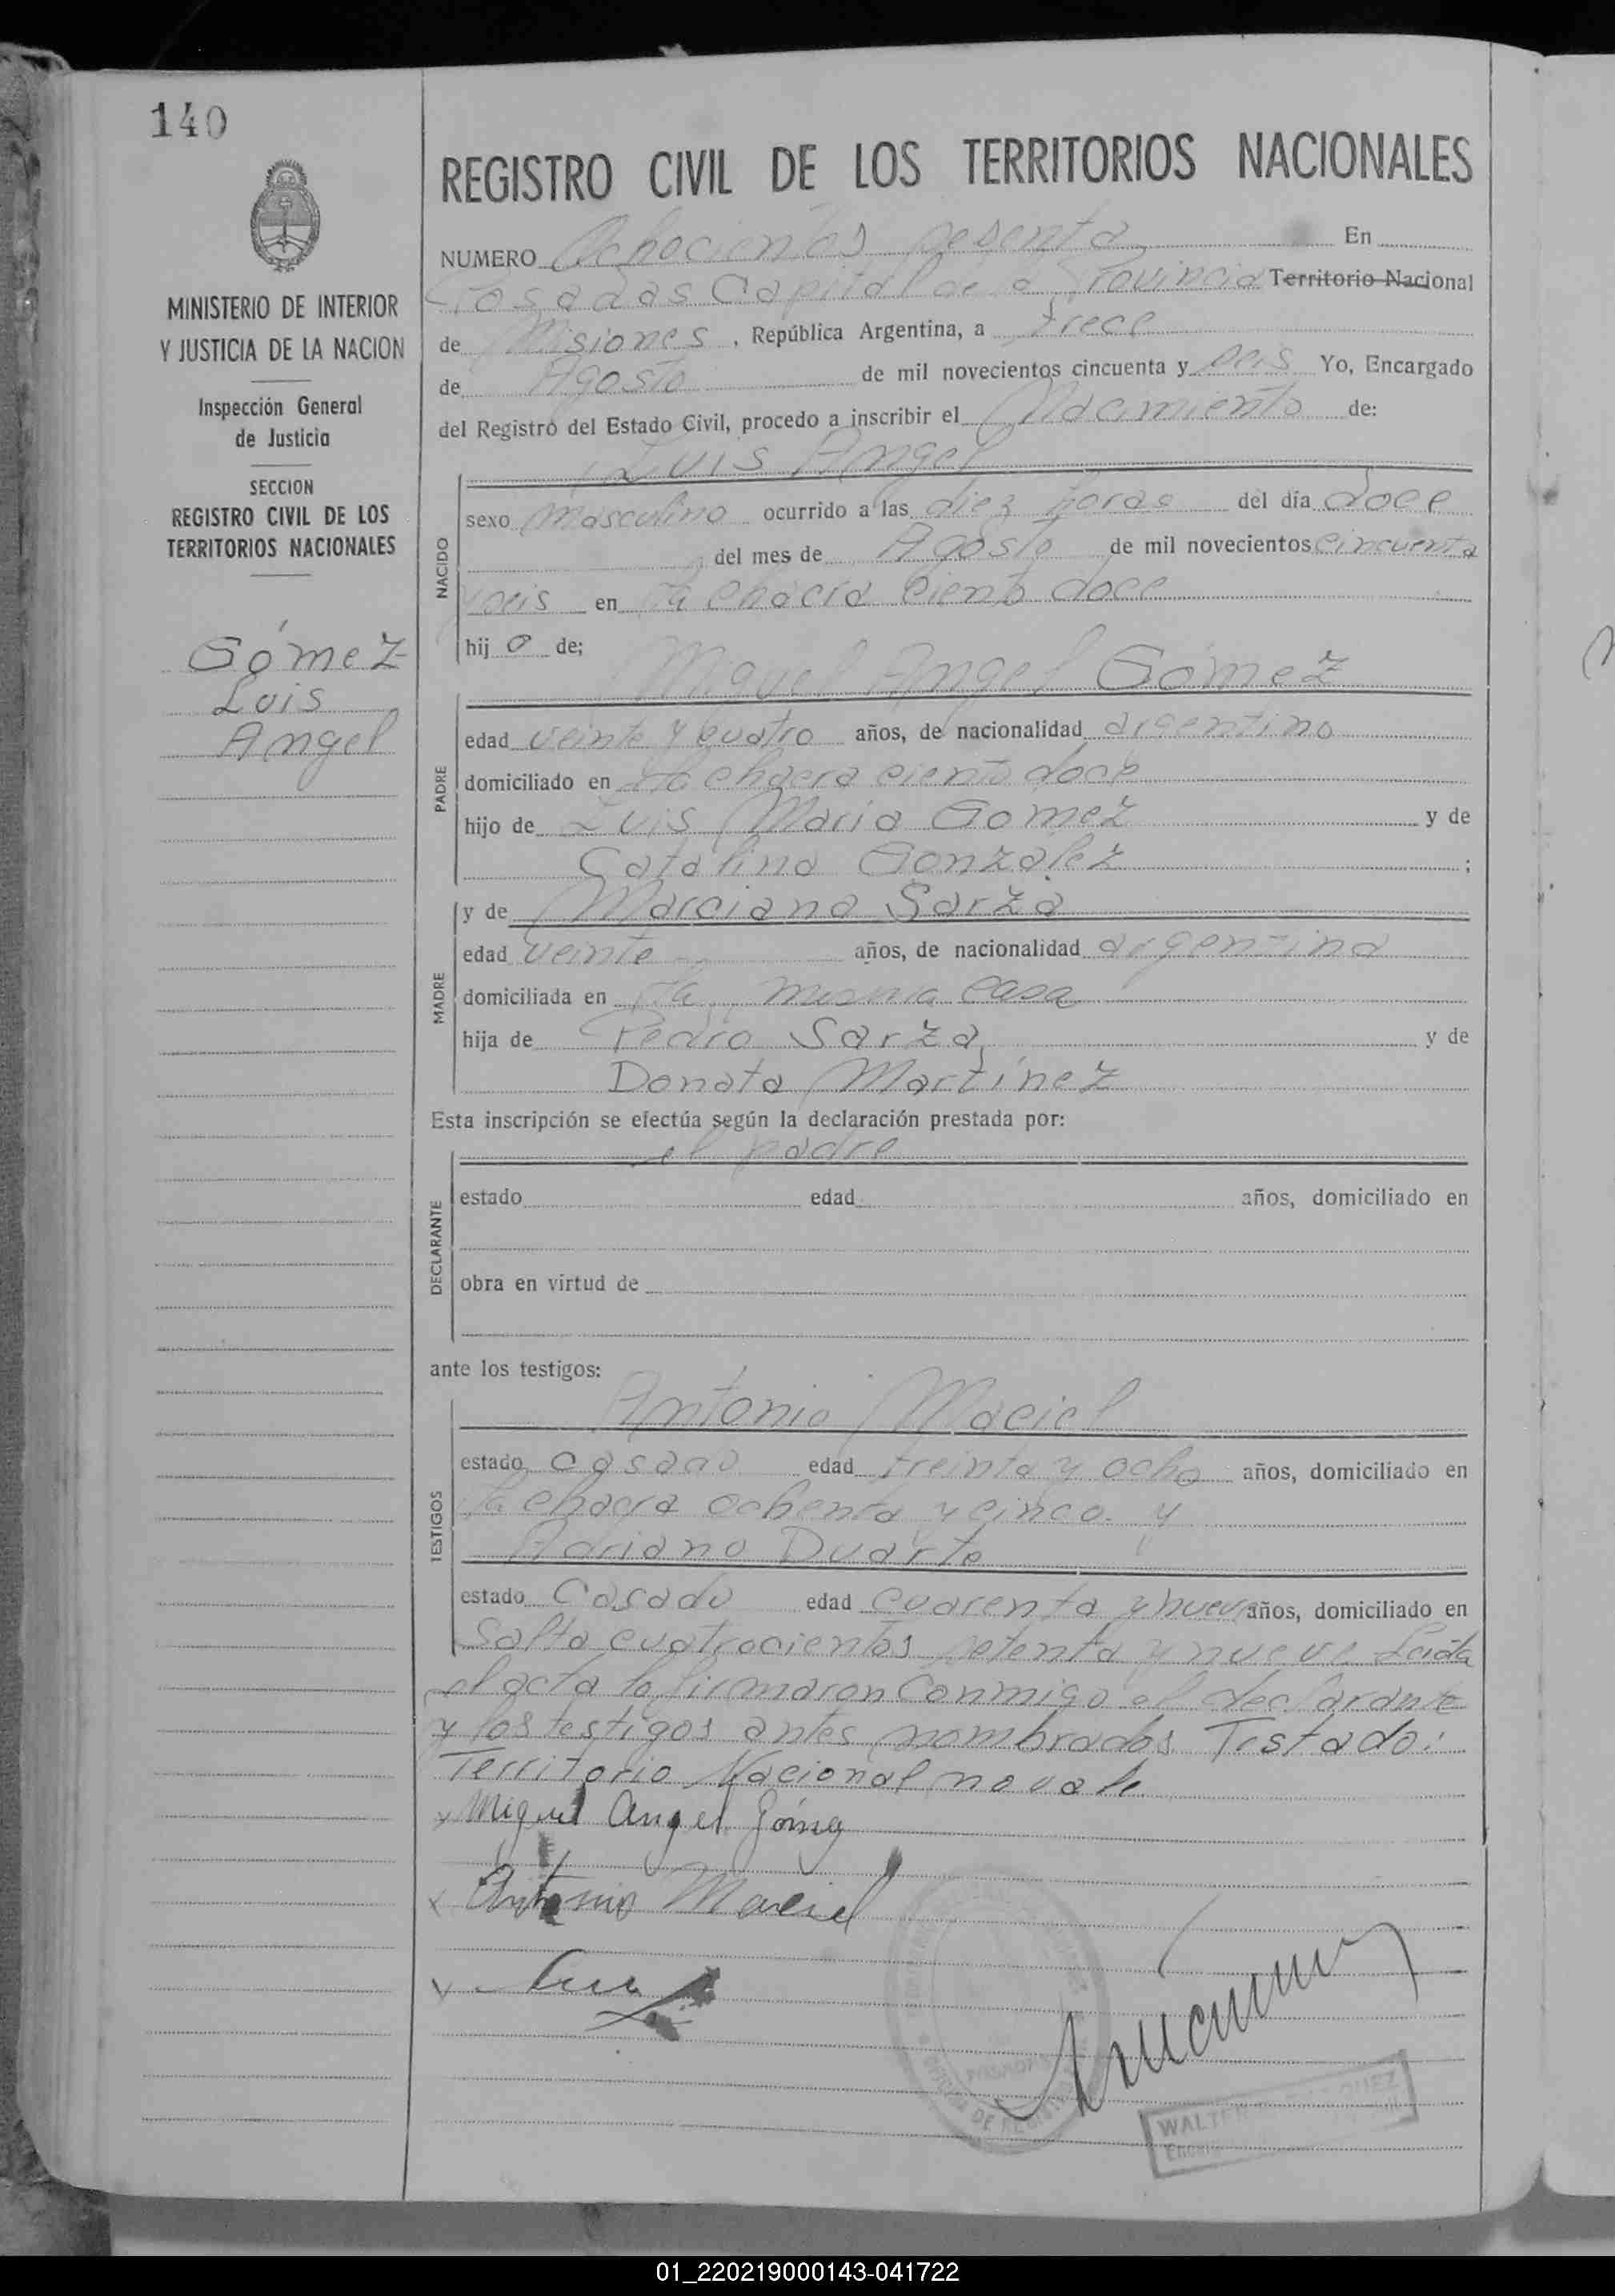 140
MINISTERIO DE INTERIOR
Y JUSTICIA DE LA NACION
Inspección General
de Justicia
SECCION
REGISTRO CIVIL DE LOS
TERRITORIOS NACIONALES
Gómez
Luis
Angel
REGISTRO CIVIL DE LOS TERRITORIOS NACIONALES
NUMERO Ochocientos sesenta En
Posadas Capital de la Provincia Territorio Nacional
de Misiones, República Argentina, a trece
de Agosto de mil novecientos cincuenta y seis Yo, Encargado
del Registro del Estado Civil, procedo a inscribir el Nacimiento de:
Luis Angel
NACIDO
sexo masculino ocurrido a las diez horas del día doce
del mes de Agosto de mil novecientos cincuenta
y seis en la chacra ciento doce
hijo de;
Miguel Angel Gómez
PADRE
edad veinte y cuatro años, de nacionalidad argentino
domiciliado en la chacra ciento doce
hijo de Luis Maria Gomez y de
Catalina Gonzalez ;
MADRE
y de Marciana Sarza
edad veinte años, de nacionalidad argentina
domiciliada en la misma casa
hija de Pedro Sarza y de
Donata Martínez
Esta inscripción se efectúa según la declaración prestada por:
el padre
DECLARANTE
estado edad años, domiciliado en
obra en virtud de
ante los testigos:
Antonio Maciel
TESTIGOS
estado casado edad treinta y ocho años, domiciliado en
la chacra ochenta y cinco y
Adriano Duarte
estado Casado edad cuarenta y nueve años, domiciliado en
Salta cuatrocientos setenta y nueve Leída
el acta la firmaron conmigo el declarante
y los testigos antes nombrados Testado:
Territorio Nacional no vale
x Miguel Angel Gómez
x Antonio Maciel
x
POSADAS
WALTER
01_220219000143-041722